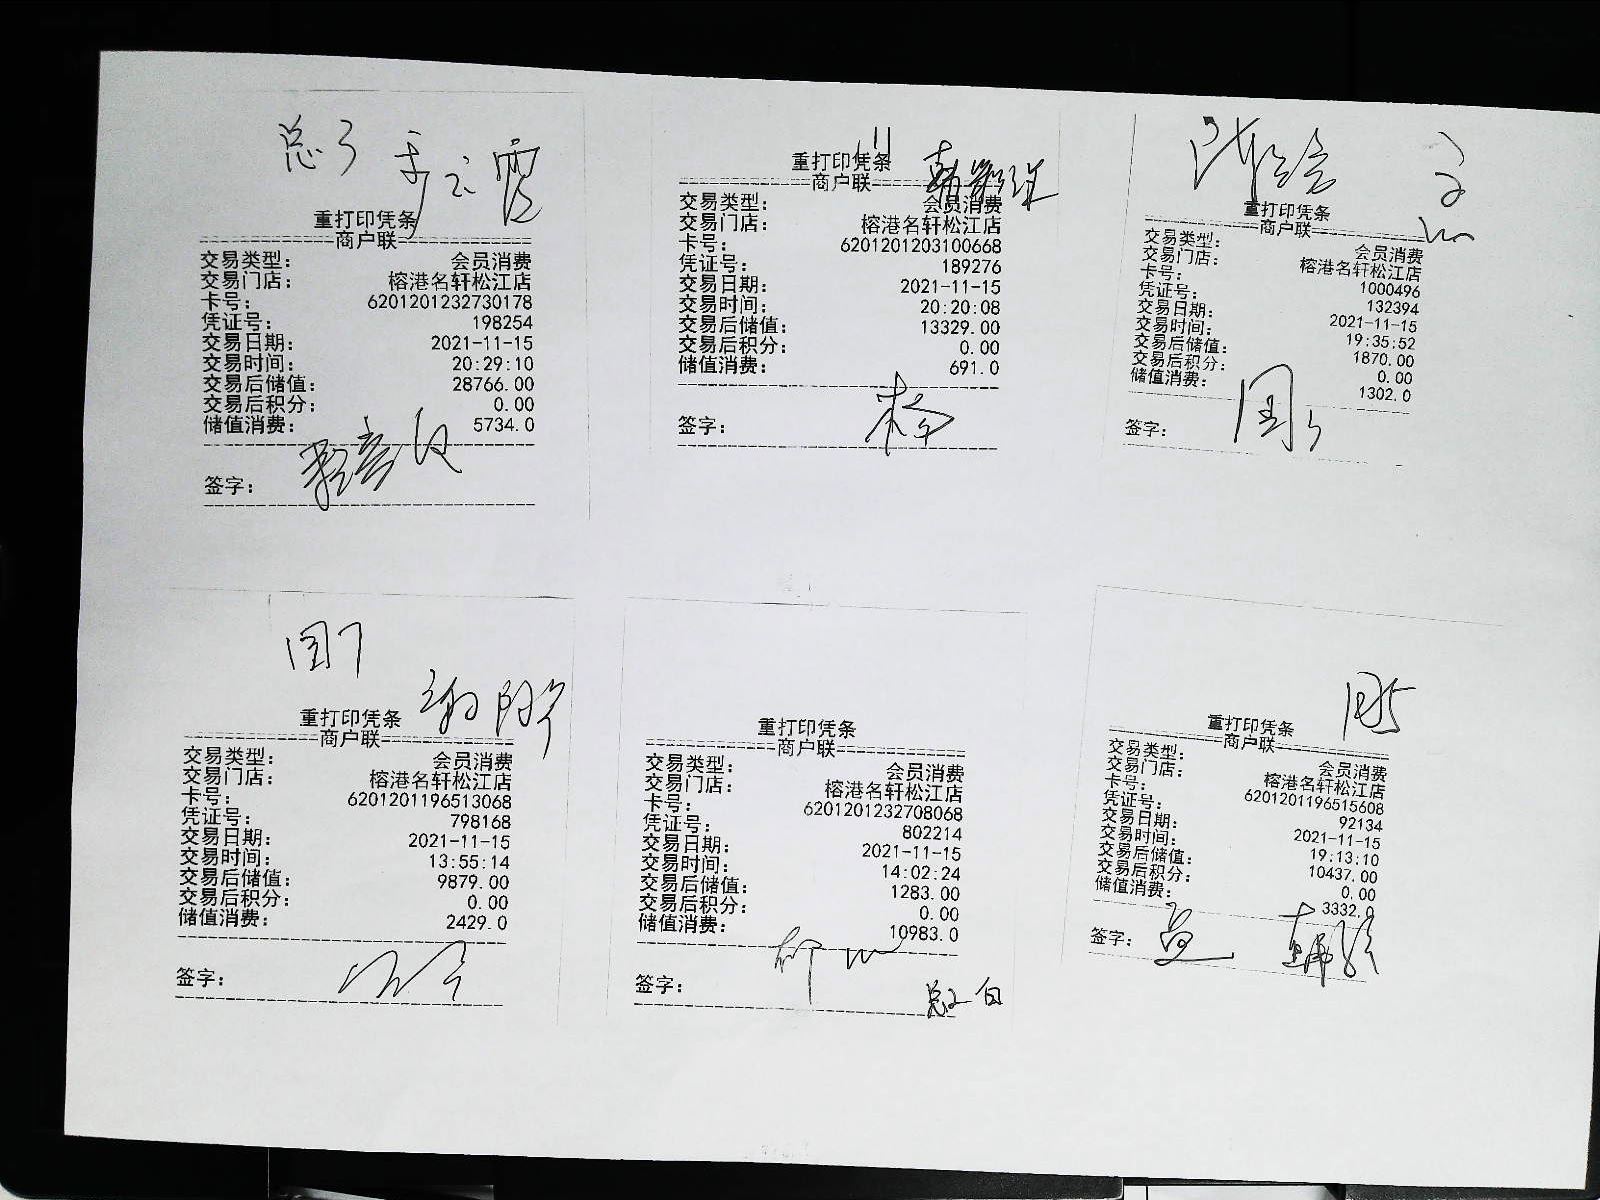 总3
重打印凭条
商户联
交易类型： 会员消费
交易门店： 榕港名轩松江店
卡号： 6201201232730178
凭证号： 198254
交易日期： 2021-11-15
交易时间： 20:29:10
交易后储值： 28766.00
交易后积分： 0.00
储值消费： 5734.0
签字：
重打印凭条
商户联
交易类型： 会员消费
交易门店： 榕港名轩松江店
卡号： 6201201203100668
凭证号： 189276
交易日期： 2021-11-15
交易时间： 20:20:08
交易后储值： 13329.00
交易后积分： 0.00
储值消费： 691.0
签字：
重打印凭条
商户联
交易类型： 会员消费
交易门店： 榕港名轩松江店
卡号： 1000496
凭证号： 132394
交易日期： 2021-11-15
交易时间： 19:35:52
交易后储值： 1870.00
交易后积分： 0.00
储值消费： 1302.0
签字：
国7
重打印凭条
商户联
交易类型： 会员消费
交易门店： 榕港名轩松江店
卡号： 6201201196513068
凭证号： 798168
交易日期： 2021-11-15
交易时间： 13:55:14
交易后储值： 9879.00
交易后积分： 0.00
储值消费： 2429.0
签字：
重打印凭条
商户联
交易类型： 会员消费
交易门店： 榕港名轩松江店
卡号： 6201201232708068
凭证号： 802214
交易日期： 2021-11-15
交易时间： 14:02:24
交易后储值： 1283.00
交易后积分： 0.00
储值消费： 10983.0
签字：
国5
重打印凭条
商户联
交易类型： 会员消费
交易门店： 榕港名轩松江店
卡号： 6201201196515608
凭证号： 92134
交易日期： 2021-11-15
交易时间： 19:13:10
交易后储值： 10437.00
交易后积分： 0.00
储值消费： 3332.0
签字：